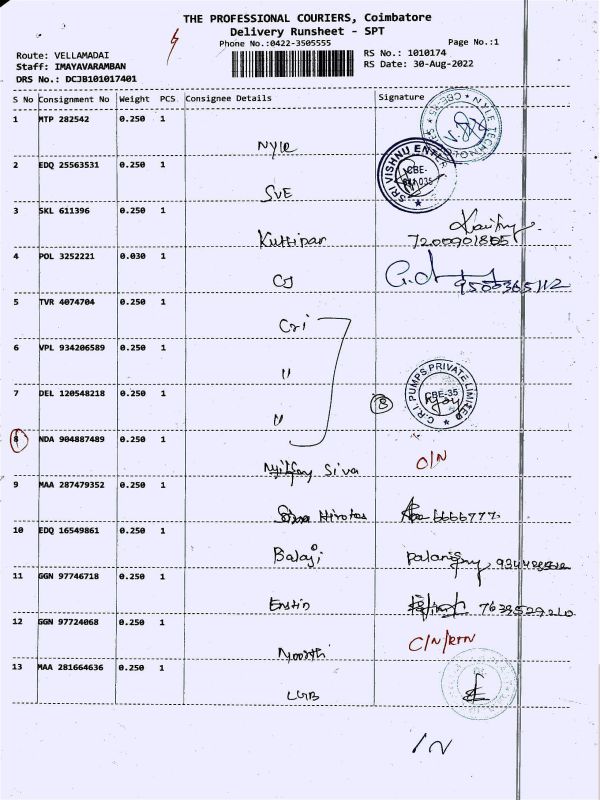 THE PROFESSIONAL COURIERS, Coimbatore
Delivery Runsheet - SPT
Phone No.:0422-3505555
Page No.:1
Route: VELLAMADAI
Staff: IMAYAVARAMBAN
DRS No.: DCJB101017401
RS No.: 1010174
RS Date: 30-Aug-2022
S No Consignment No Weight PCS. Consignee Details Signature
1 MTP 282542 0.250 1
NYLE
2 EDQ 25563531 0.250 1
SRI VISHNU ENTER CBE-
SVE
3 SKL 611396 0.250 1
7200901805
4 POL 3252221 0.030 1
CJ
9500365112
5 TVR 4074704 0.250 1
Cri
6 VPL 934206589 0.250 1
"
7 DEL 120548218 0.250 1
"
C.R.I. PUMPS PRIVATE LIMITED CBE-35
8 NDA 904887489 0.250 1
Siva
O/N
9 MAA 287479352 0.250 1
10 EDQ 16549861 0.250 1
Balaji
11 GGN 97746718 0.250 1
7639529210
12 GGN 97724068 0.250 1
Moorthi
C/N/RTN
13 MAA 281664636 0.250 1
LGB